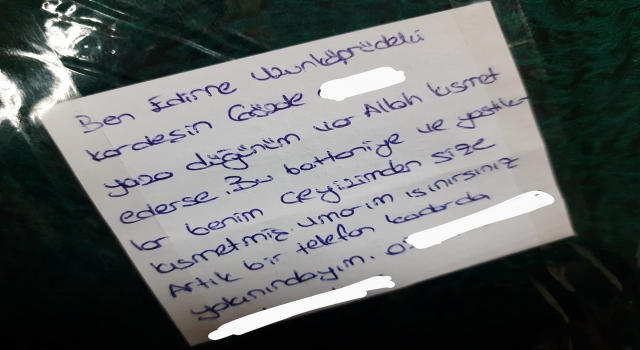 Ben Edirne Uzunköprüdeki
kardeşin Gözde
yaza düğünüm var Allah kısmet
ederse. Bu battaniye ve yastık
lar benim çeyizimden size
kısmetmiş. Umarım ısınırsınız
Artık bir telefon kadarda
yakınındayım. 0